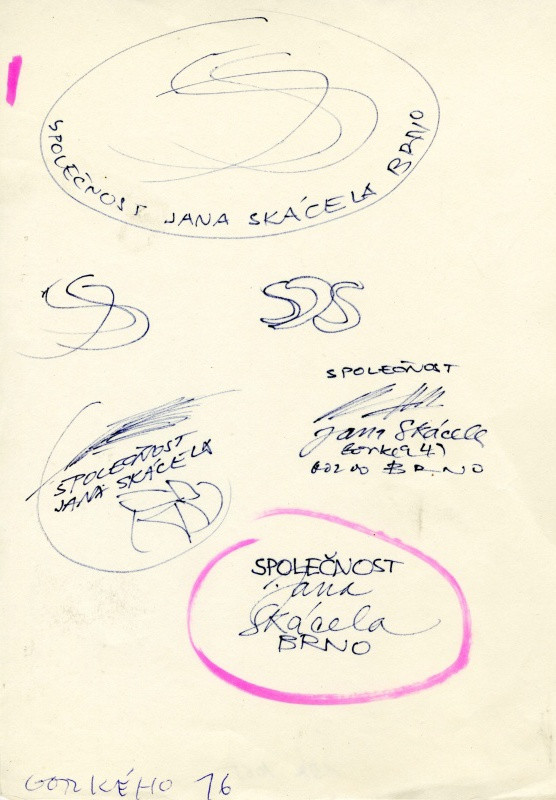 SPOLEČNOST JANA SKÁCELA BRNO
SPOLEČNOST
SPOLEČNOST
JANA SKÁCELA
Jana Skácela
602 00 BRNO
SPOLEČNOST
Jana
Skácela
BRNO
GORKÉHO 16